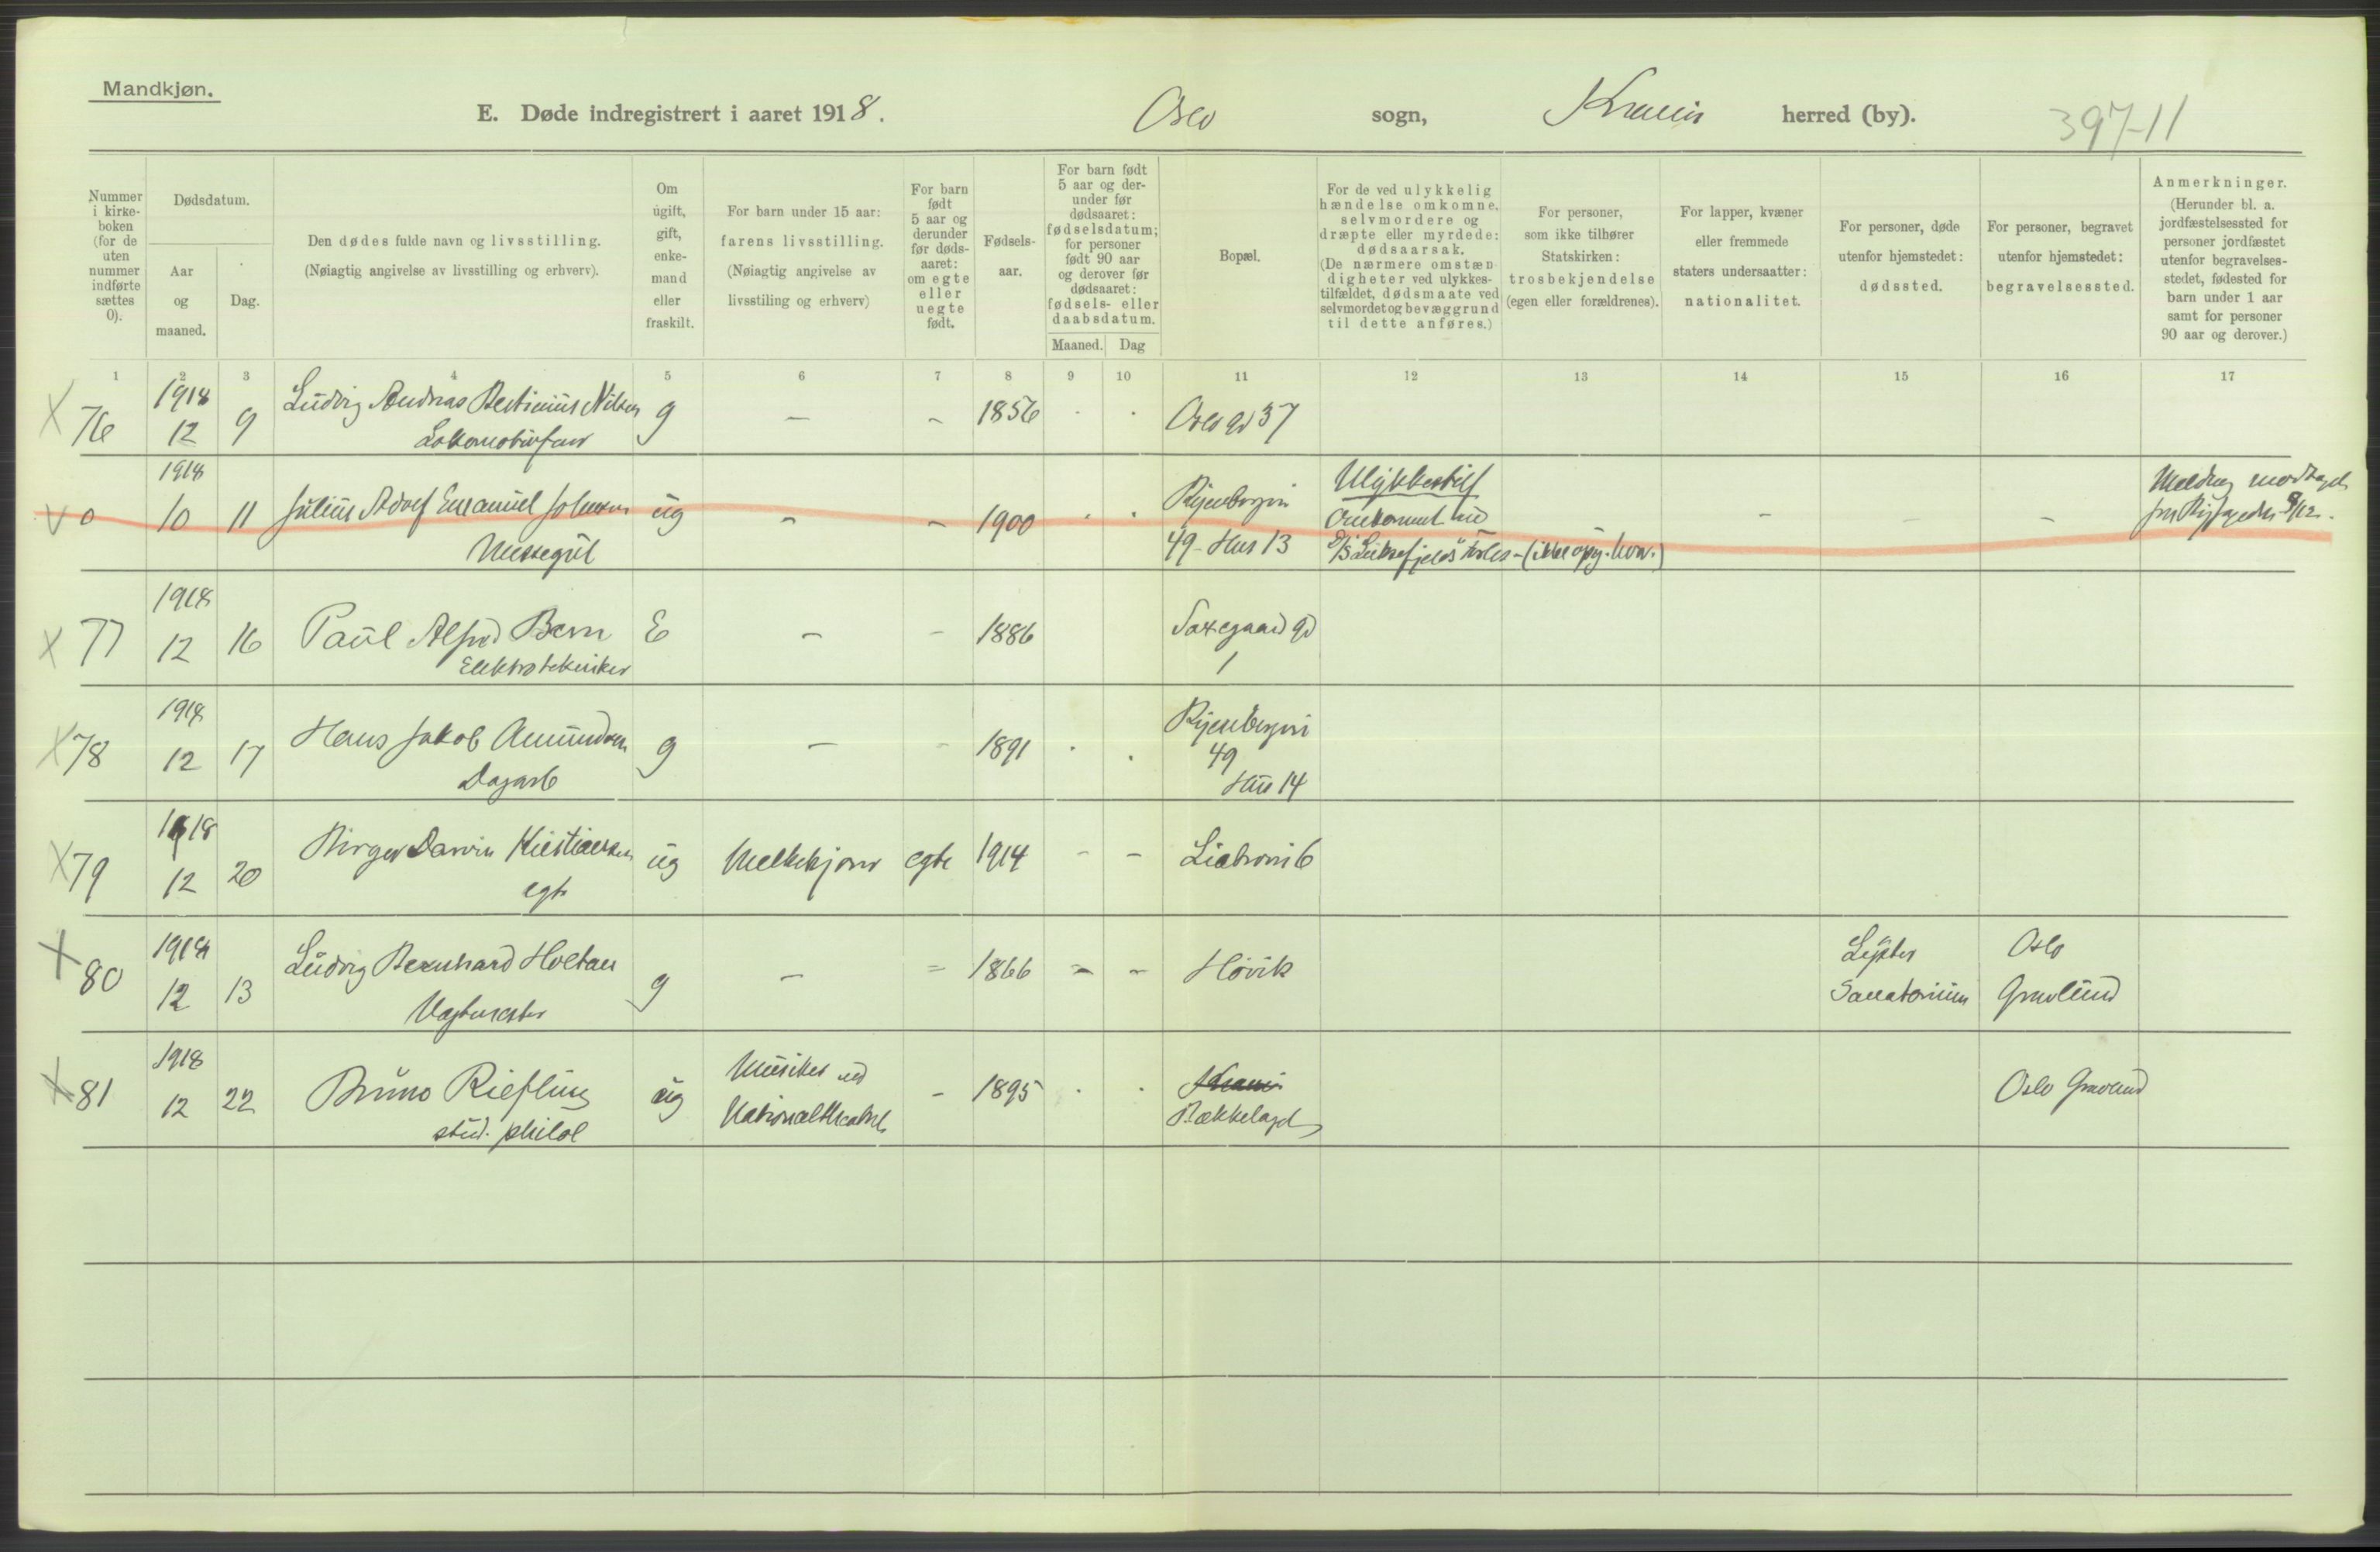 Mandkjøn.
E. Døde indregistrert i aaret 1918. Oslo sogn, herred (by). 397-11
Nummer i kirke-boken (for de uten nummer indførte sættes 0).
Dødsdatum.
Aar og maaned.
Dag.
Den dødes fulde navn og livsstilling.
(Nøiagtig angivelse av livsstilling og erhverv).
Om ugift, gift, enke-mand eller fraskilt.
For barn under 15 aar: farens livsstilling.
(Nøiagtig angivelse av livsstiling og erhverv)
For barn født 5 aar og derunder før døds-aaret: om egte eller uegte født.
Fødsels-aar.
For barn født 5 aar og der-under før dødsaaret: fødselsdatum; for personer født 90 aar og derover før dødsaaret: fødsels- eller daabsdatum.
Maaned. Dag
Bopæl.
For de ved ulykkelig hændelse omkomne, selvmordere og dræpte eller myrdede: dødsaarsak.
(De nærmere omstæn digheter ved ulykkes-tilfældet, dødsmaate ved selvmordet og bevæggrund til dette anføres.)
For personer, som ikke tilhører Statskirken: trosbekjendelse (egen eller forældrenes).
For lapper, kvæner eller fremmede staters undersaatter: nationalitet.
For personer, døde utenfor hjemstedet: dødssted.
For personer, begravet utenfor hjemstedet: begravelsessted.
Anmerkninger.
(Herunder bl. a. jordfæstelsessted for personer jordfæstet utenfor begravelses-stedet, fødested for barn under 1 aar samt for personer 90 aar og derover.)
1 2 3 4 5 6 7 8 9 10 11 12 13 14 15 16 17
X 76 1918 12 9 Ludvig Andreas Nilsen g – – 1856 Oslo gd 37
0 1918 10 11 Julius Adolf Emanuel Johnsen ug – – 1900 49 - Hus 13
Messegut
X 77 1918 12 16 Paul Alfred Bern E – – 1886 Saxegaard gd 1
Elektrotekniker
X 78 1918 12 17 Hans Jakob Amundsen g – – 1891 49 Hus 14
Dagarb
X 79 1918 12 20 Birger Darwin Kristiansen ug egte 1914 – –
X 80 1918 12 13 Ludvig Bernhard Holtan g – 1866 – – Høvik Lyster Sanatorium Oslo Gravlund
Vagtmester
X 81 1918 12 22 Bruno Riefling ug Musiker ved Nationaltheatret – 1895 Bækkelaget Oslo Gravlund
stud. philol